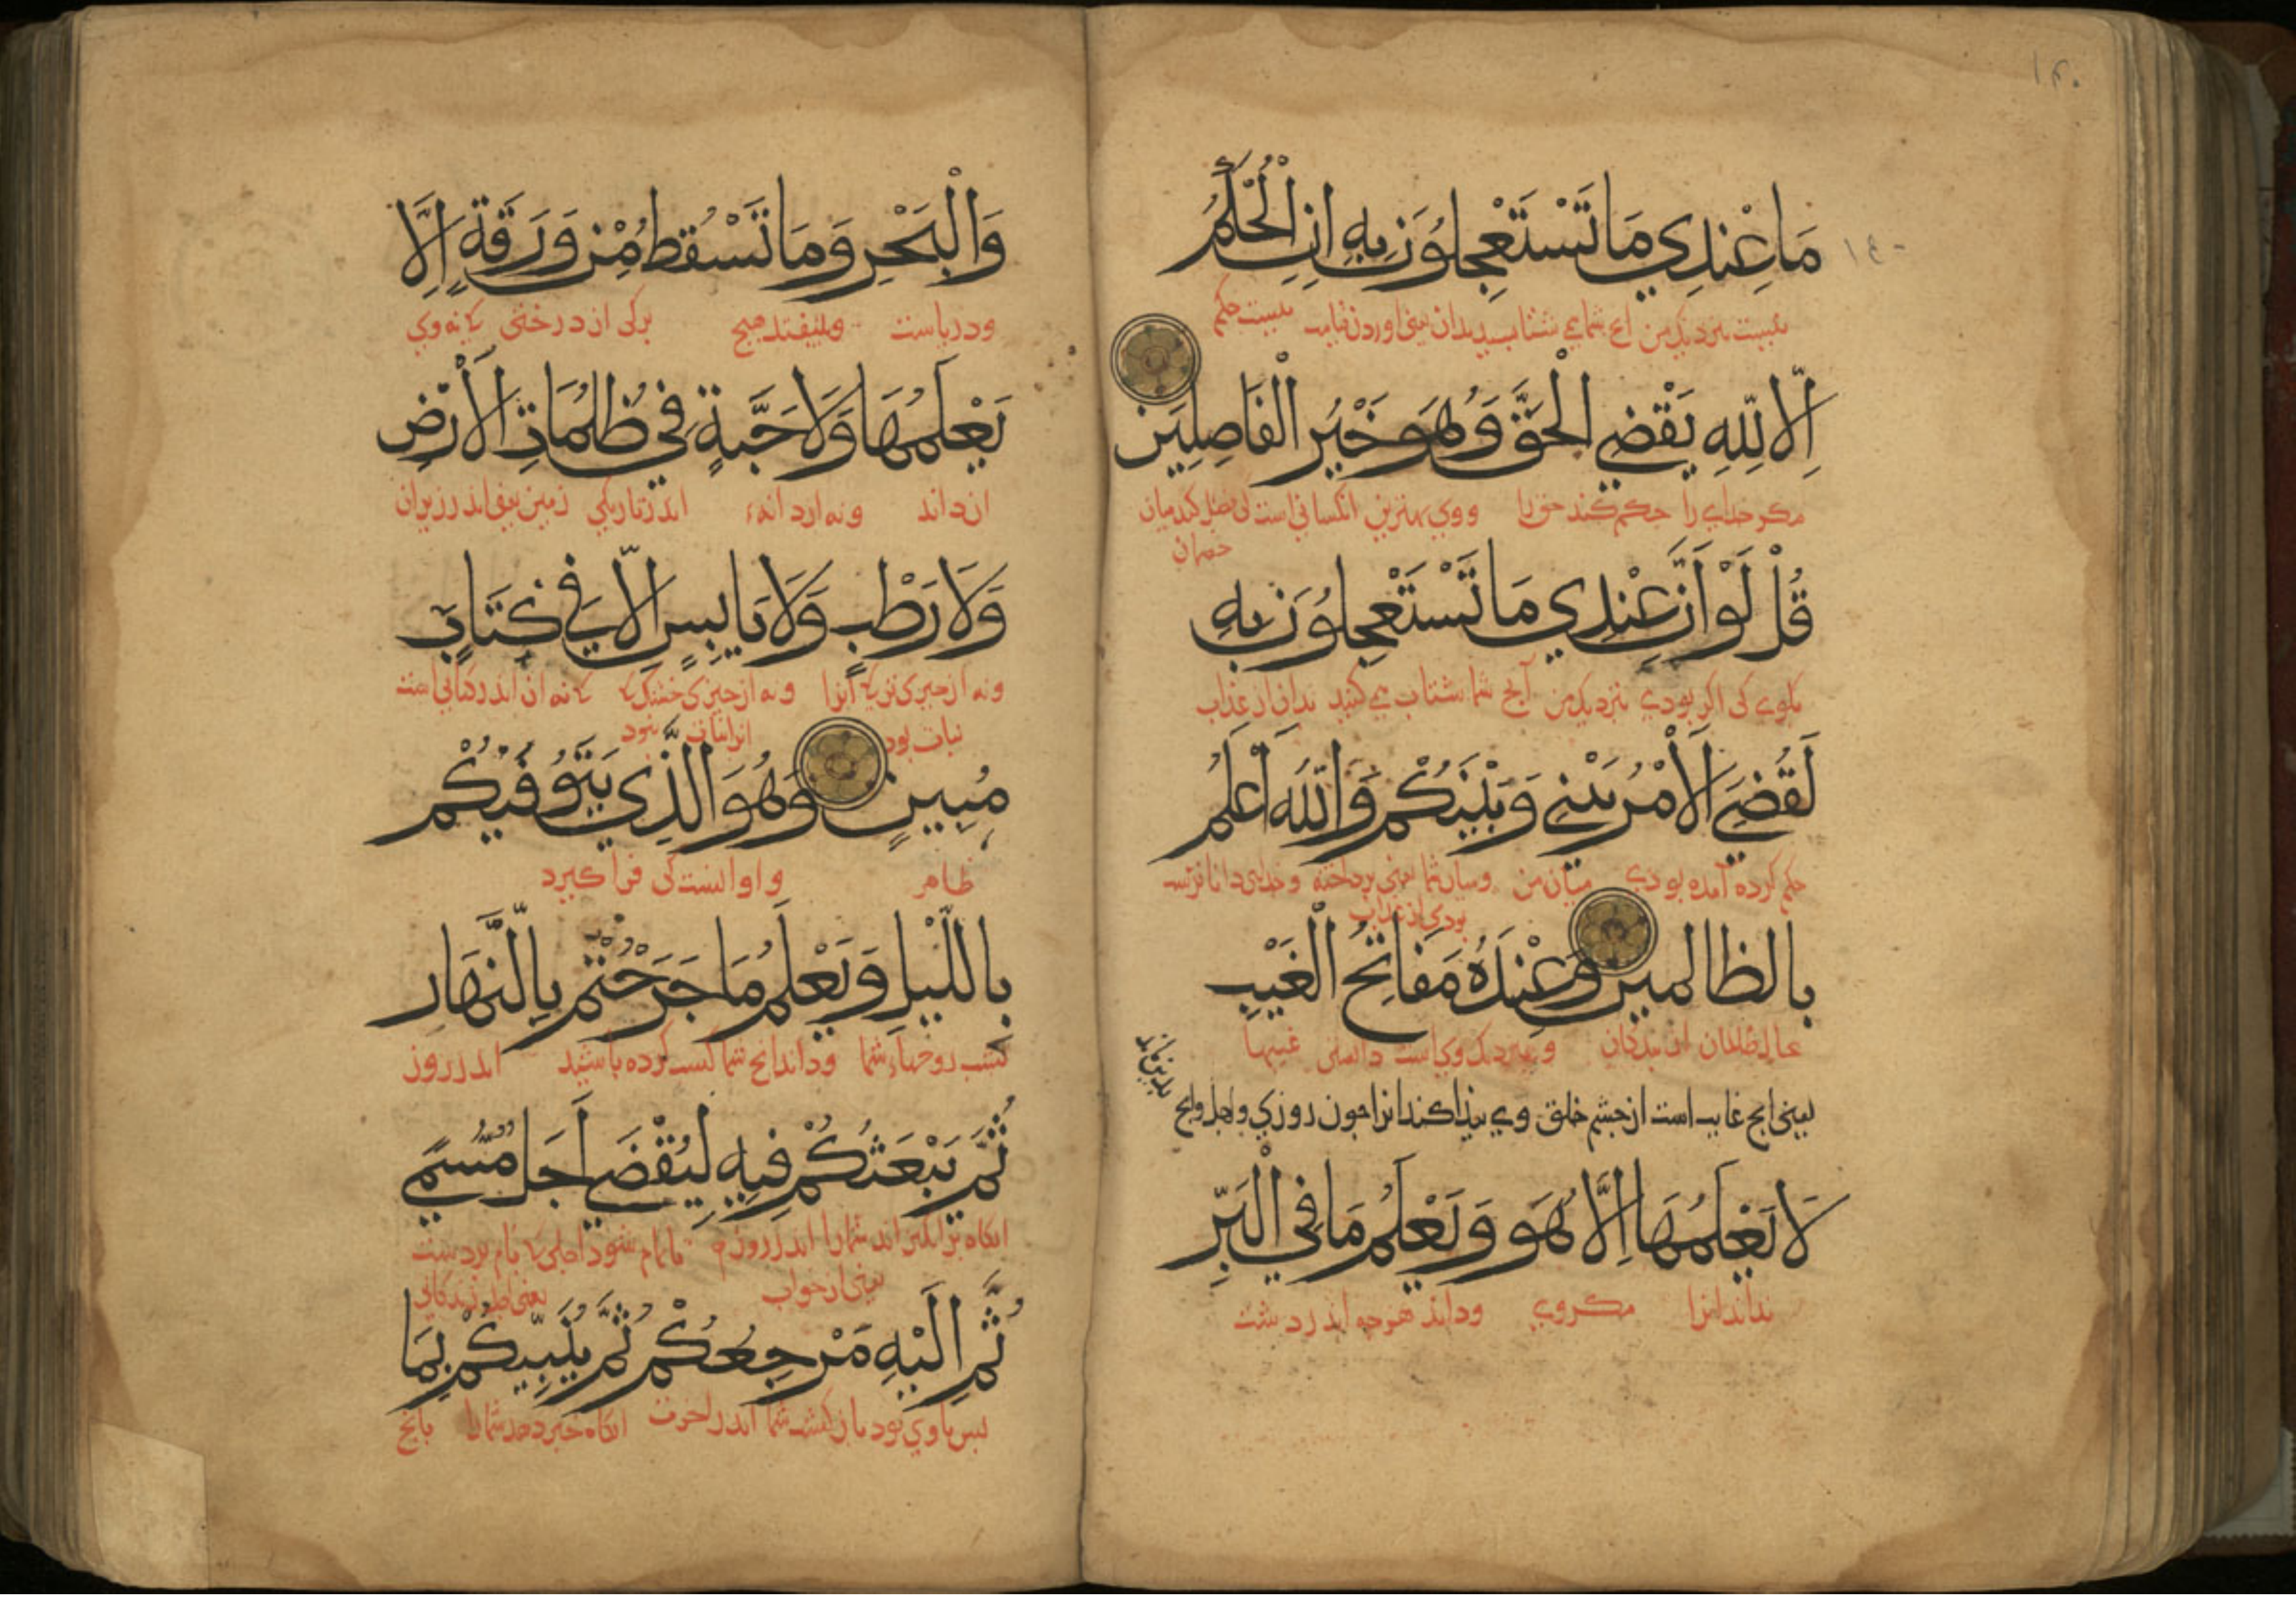 ١٣٠
مَا عِنْدِي مَا تَسْتَعْجِلُوْنَ بِهِ اِنِ الْحُكْمُ
١٤٠
نیست نزدیک من شتاب بدان یعنی اوردن قیامت نیست حکم
اِلَّا لِلّٰهِ يَقْضِي الْحَقَّ وَهُوَ خَيْرُ الْفَاصِلِيْنَ
مکر خدایرا حکم کند حق را ووی بهترین انکسانی است کی فصل کند میان
خصمان
قُلْ لَوْ اَنَّ عِنْدِي مَا تَسْتَعْجِلُوْنَ بِهِ
بکوی کی اکر بودی نزدیک من آنج شما شتاب می کنید بدان از عذاب
لَقُضِيَ الْاَمْرُ بَيْنِي وَبَيْنَكُمْ وَاللّٰهُ اَعْلَمُ
حکم کرده آمده بودی میان من ومیان شما یعنی پرداخته وخدای داناترست
بودی از عذاب
بالظالمين وَعِنْدَهُ مَفَاتِحُ الْغَيْبِ
بظالمان از بندکان ونزدیک وی است دانستن غیبها
یعنی انج غایب است از چشم خلق وی پیذا کند انرا چون روزی واجل وانج
بدین ماند
لَا يَعْلَمُهَا اِلَّا هُوَ وَيَعْلَمُ مَا فِي الْبَرِّ
نداند انرا مکر وی وداند هرچه اندر دشت
وَالْبَحْرِ وَمَا تَسْقُطُ مِنْ وَرَقَةٍ اِلَّا
ودریاست ونیفتد هیچ برکی از درختی که نه وی
يَعْلَمُهَا وَلَا حَبَّةٍ فِي ظُلُمَاتِ الْاَرْضِ
ان داند ونه از دانهء اندر تاریکی زمین یعنی اندر زیران
وَلَا رَطْبٍ وَلَا يَابِسٍ اِلَّا فِي كِتَابٍ
ونه از چیزی تر که انرا ونه از چیزی خشک که که نه ان اندر کتابی است
نبات بود انرا نبات نبود
مُبِينٍ وَهُوَ الَّذِي يَتَوَفّٰيكُمْ
ظاهر واو انست کی فراکیرد
بِاللَّيْلِ وَيَعْلَمُ مَا جَرَحْتُمْ بِالنَّهَارِ
بشب روحهاء شما وداند انج شما کسب کرده باشید اندر روز
ثُمَّ يَبْعَثُكُمْ فِيهِ لِيُقْضَى اَجَلٌ مُسَمًّى
انکاه برانکیزاند شمارا اندر روز تا تمام شود اجلی که نام بردست
یعنی از خواب یعنی زندکانی
ثُمَّ اِلَيْهِ مَرْجِعُكُمْ ثُمَّ يُنَبِّيكُمْ بِمَا
پس باوی بود بازکشت شما اندر اخرت انکاه خبر دهد شمارا بانج